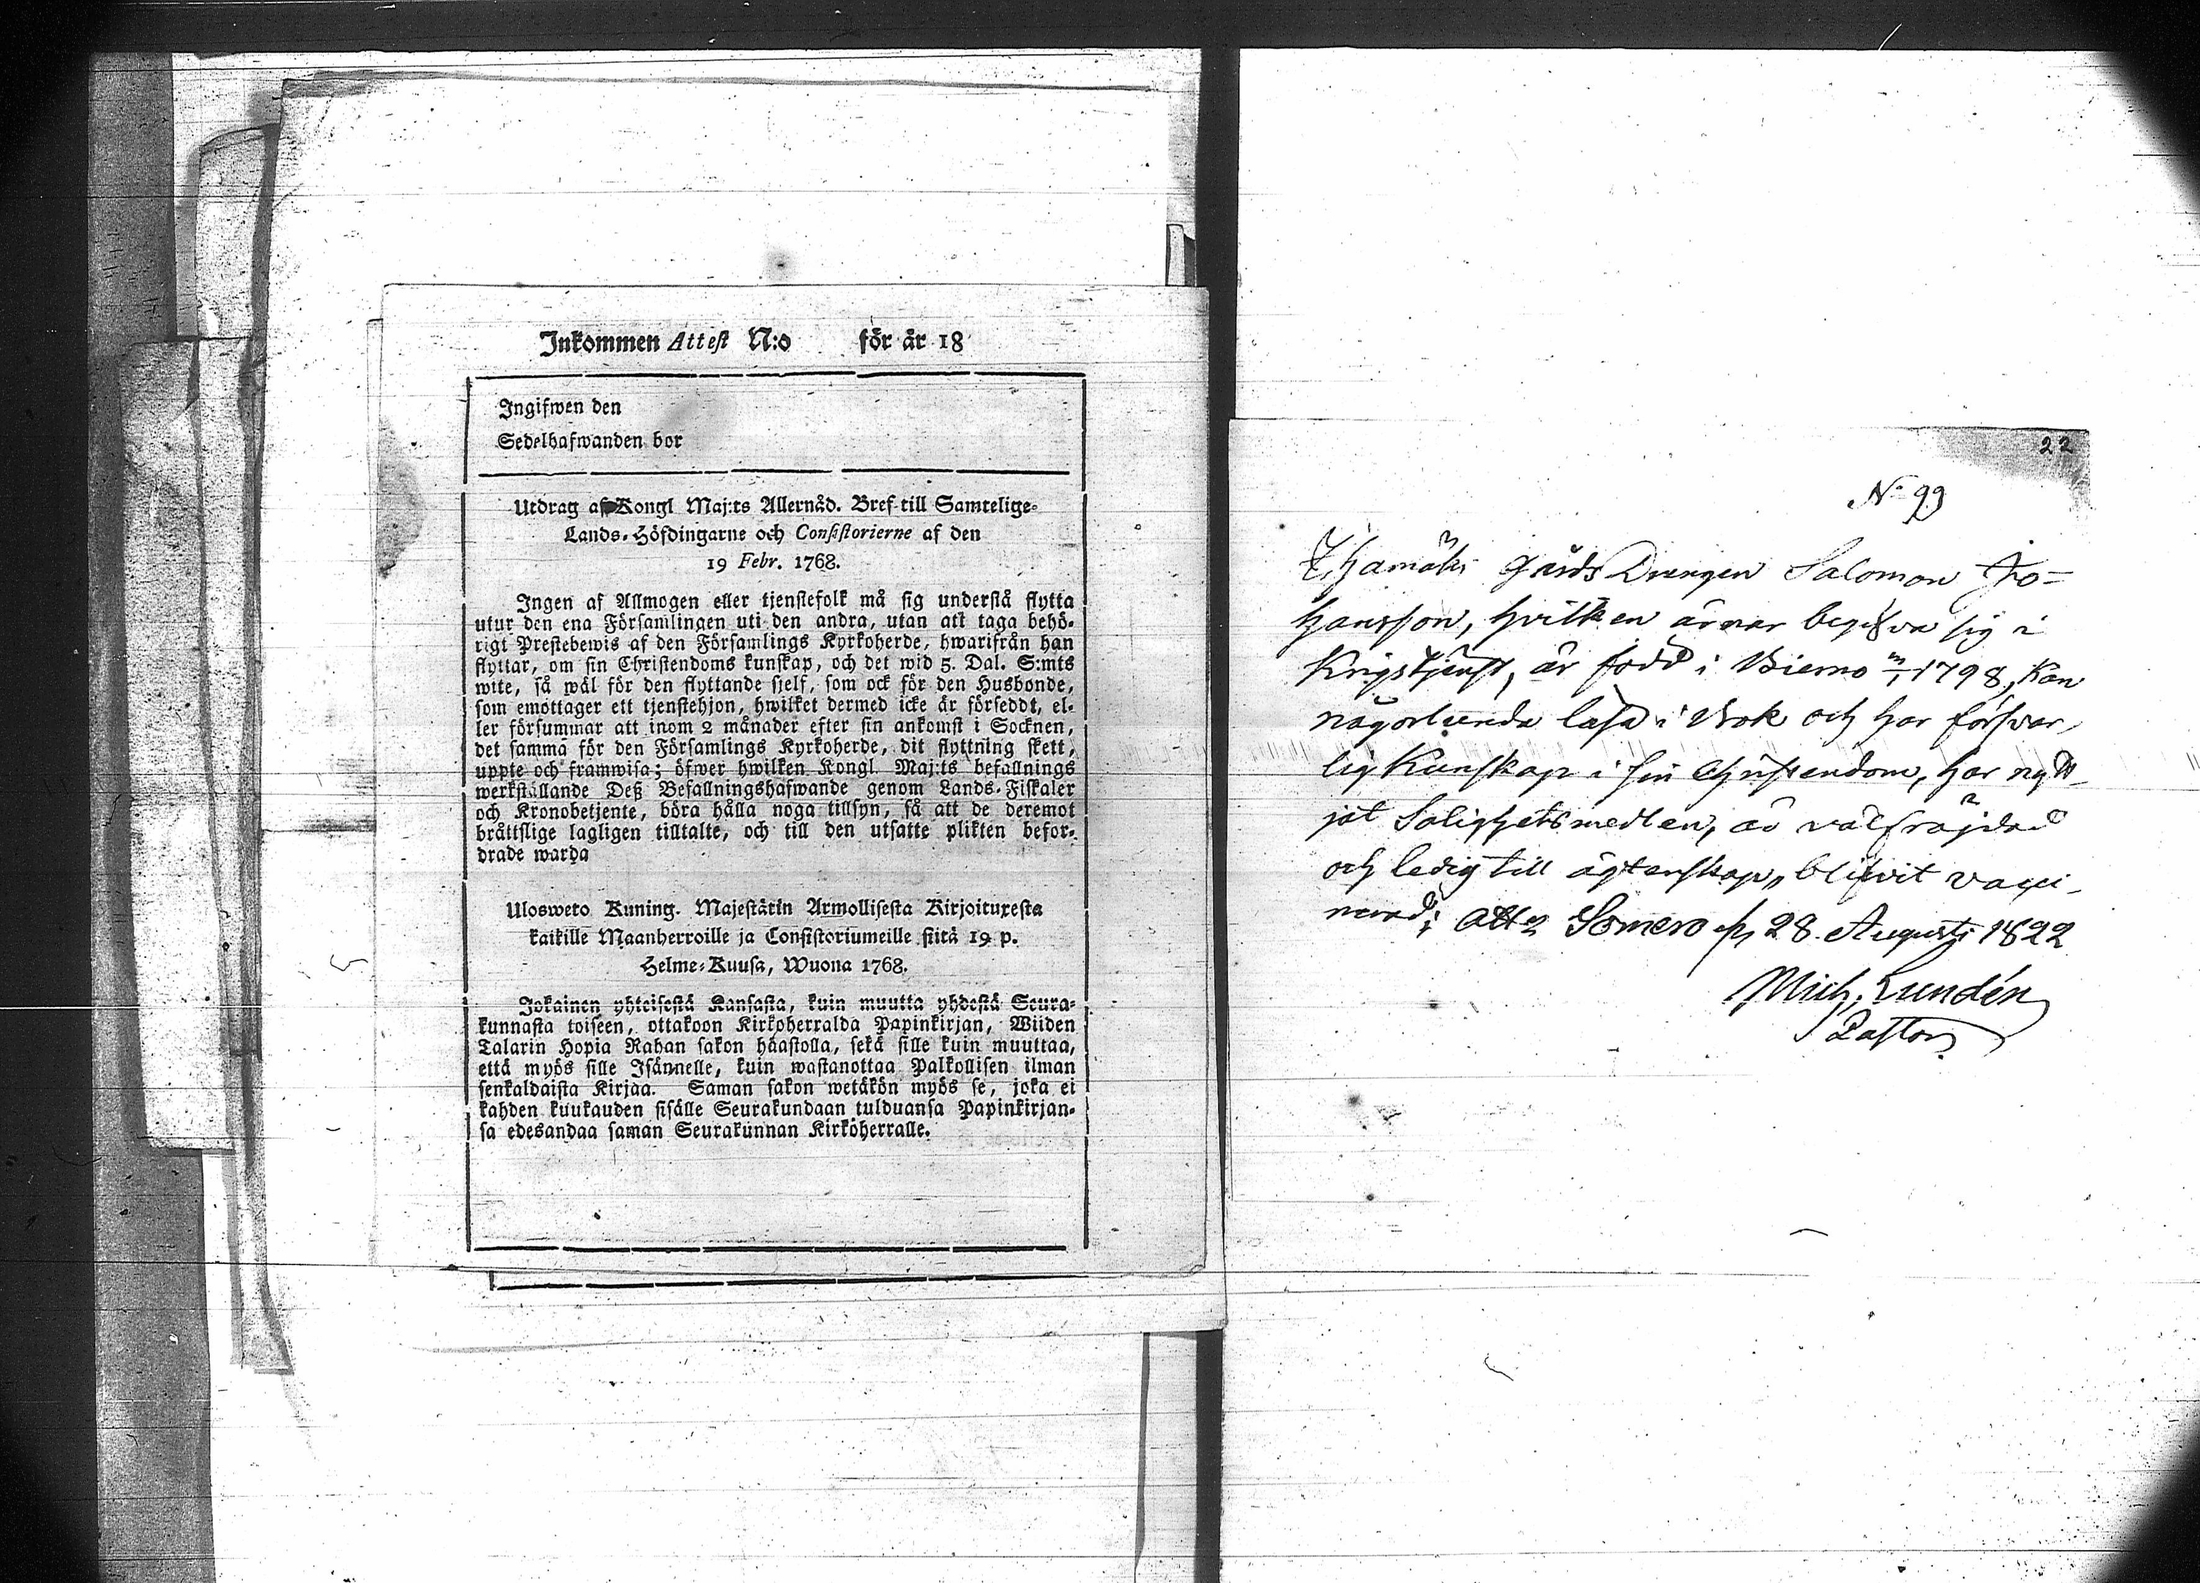 Inkommen Attest N:o för år 18
Ingifwen den
Sedelhafwanden bor
Utdrag af Kongl Maj:ts Allernåd. Bref till Samtelige-
Lands-Höfdingarne och Consistorierne af den
19 Febr. 1768.
Ingen af Allmogen eller tjenstefolk må sig understå flytta
utur den ena Församlingen uti den andra, utan att taga behö-
rigt Prestebewis af den Församlings Kyrkoherde, hwarifrån han
flyttar, om sin Christendoms kunskap, och det wid 5. Dal. S:mts
wite, så wäl för den flyttande sjelf, som ock för den Husbonde,
som emottager ett tjenstehjon, hwilket dermed icke är försedt, el-
ler försummar att inom 2 månader efter sin ankomst i Socknen,
det samma för den Församlings Kyrkoherde, dit flyttning skett,
uppte och framwisa; öfwer hwilken Kongl. Maj:ts befallnings
werkställande Deß Befallningshafwande genom Lands-Fiskaler
och Kronobetjente, böra hålla noga tillsyn, så att de deremot
bråttslige lagligen tilltalte, och till den utsatte plikten befor-
drade warda
Ulosweto Kuning. Majestätin Armollisesta Kirjoituxesta
kaikille Maanherroille ja Consistoriumeille siitä 19 p.
Helme-Kuusa, Wuona 1768.
Jokainen yhteisestä Kansasta, kuin muutta yhdestä Seura-
kunnasta toiseen, ottakoon Kirkoherralda Papinkirjan, Wiiden
Talarin Hopia Rahan sakon haastolla, sekä sille kuin muuttaa,
että myös sille Isännelle, kuin wastanottaa Palkollisen ilman
senkaldaista Kirjaa. Saman sakon wetäkön myös se, joka ei
kahden kuukauden sisälle Seurakundaan tulduansa Papinkirjan-
sa edesandaa saman Seurakunnan Kirköherralle.
22
N 99
gårds Drengen Salomon Jo-
hansson, hvilken ärnar begifva sig i
Krigstjenst, är född i Biemo 1798, Kan
någorlunda läsa i Bok och har försvar-
lig Kunskap i sin Christendom, har nytt-
jat Salighetsmedlen, är välfräjdad
och ledig till ägtenskap, blifvit vacci-
nerad; Somero 28. Augusti 1822
Mich. Lundén
Pastor